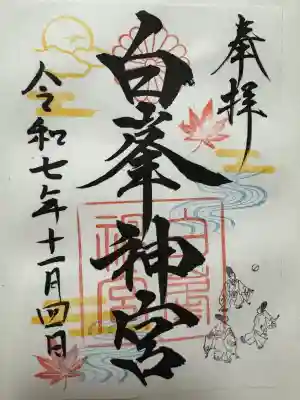 奉拝
白峯神宮
令和七年十一月四日